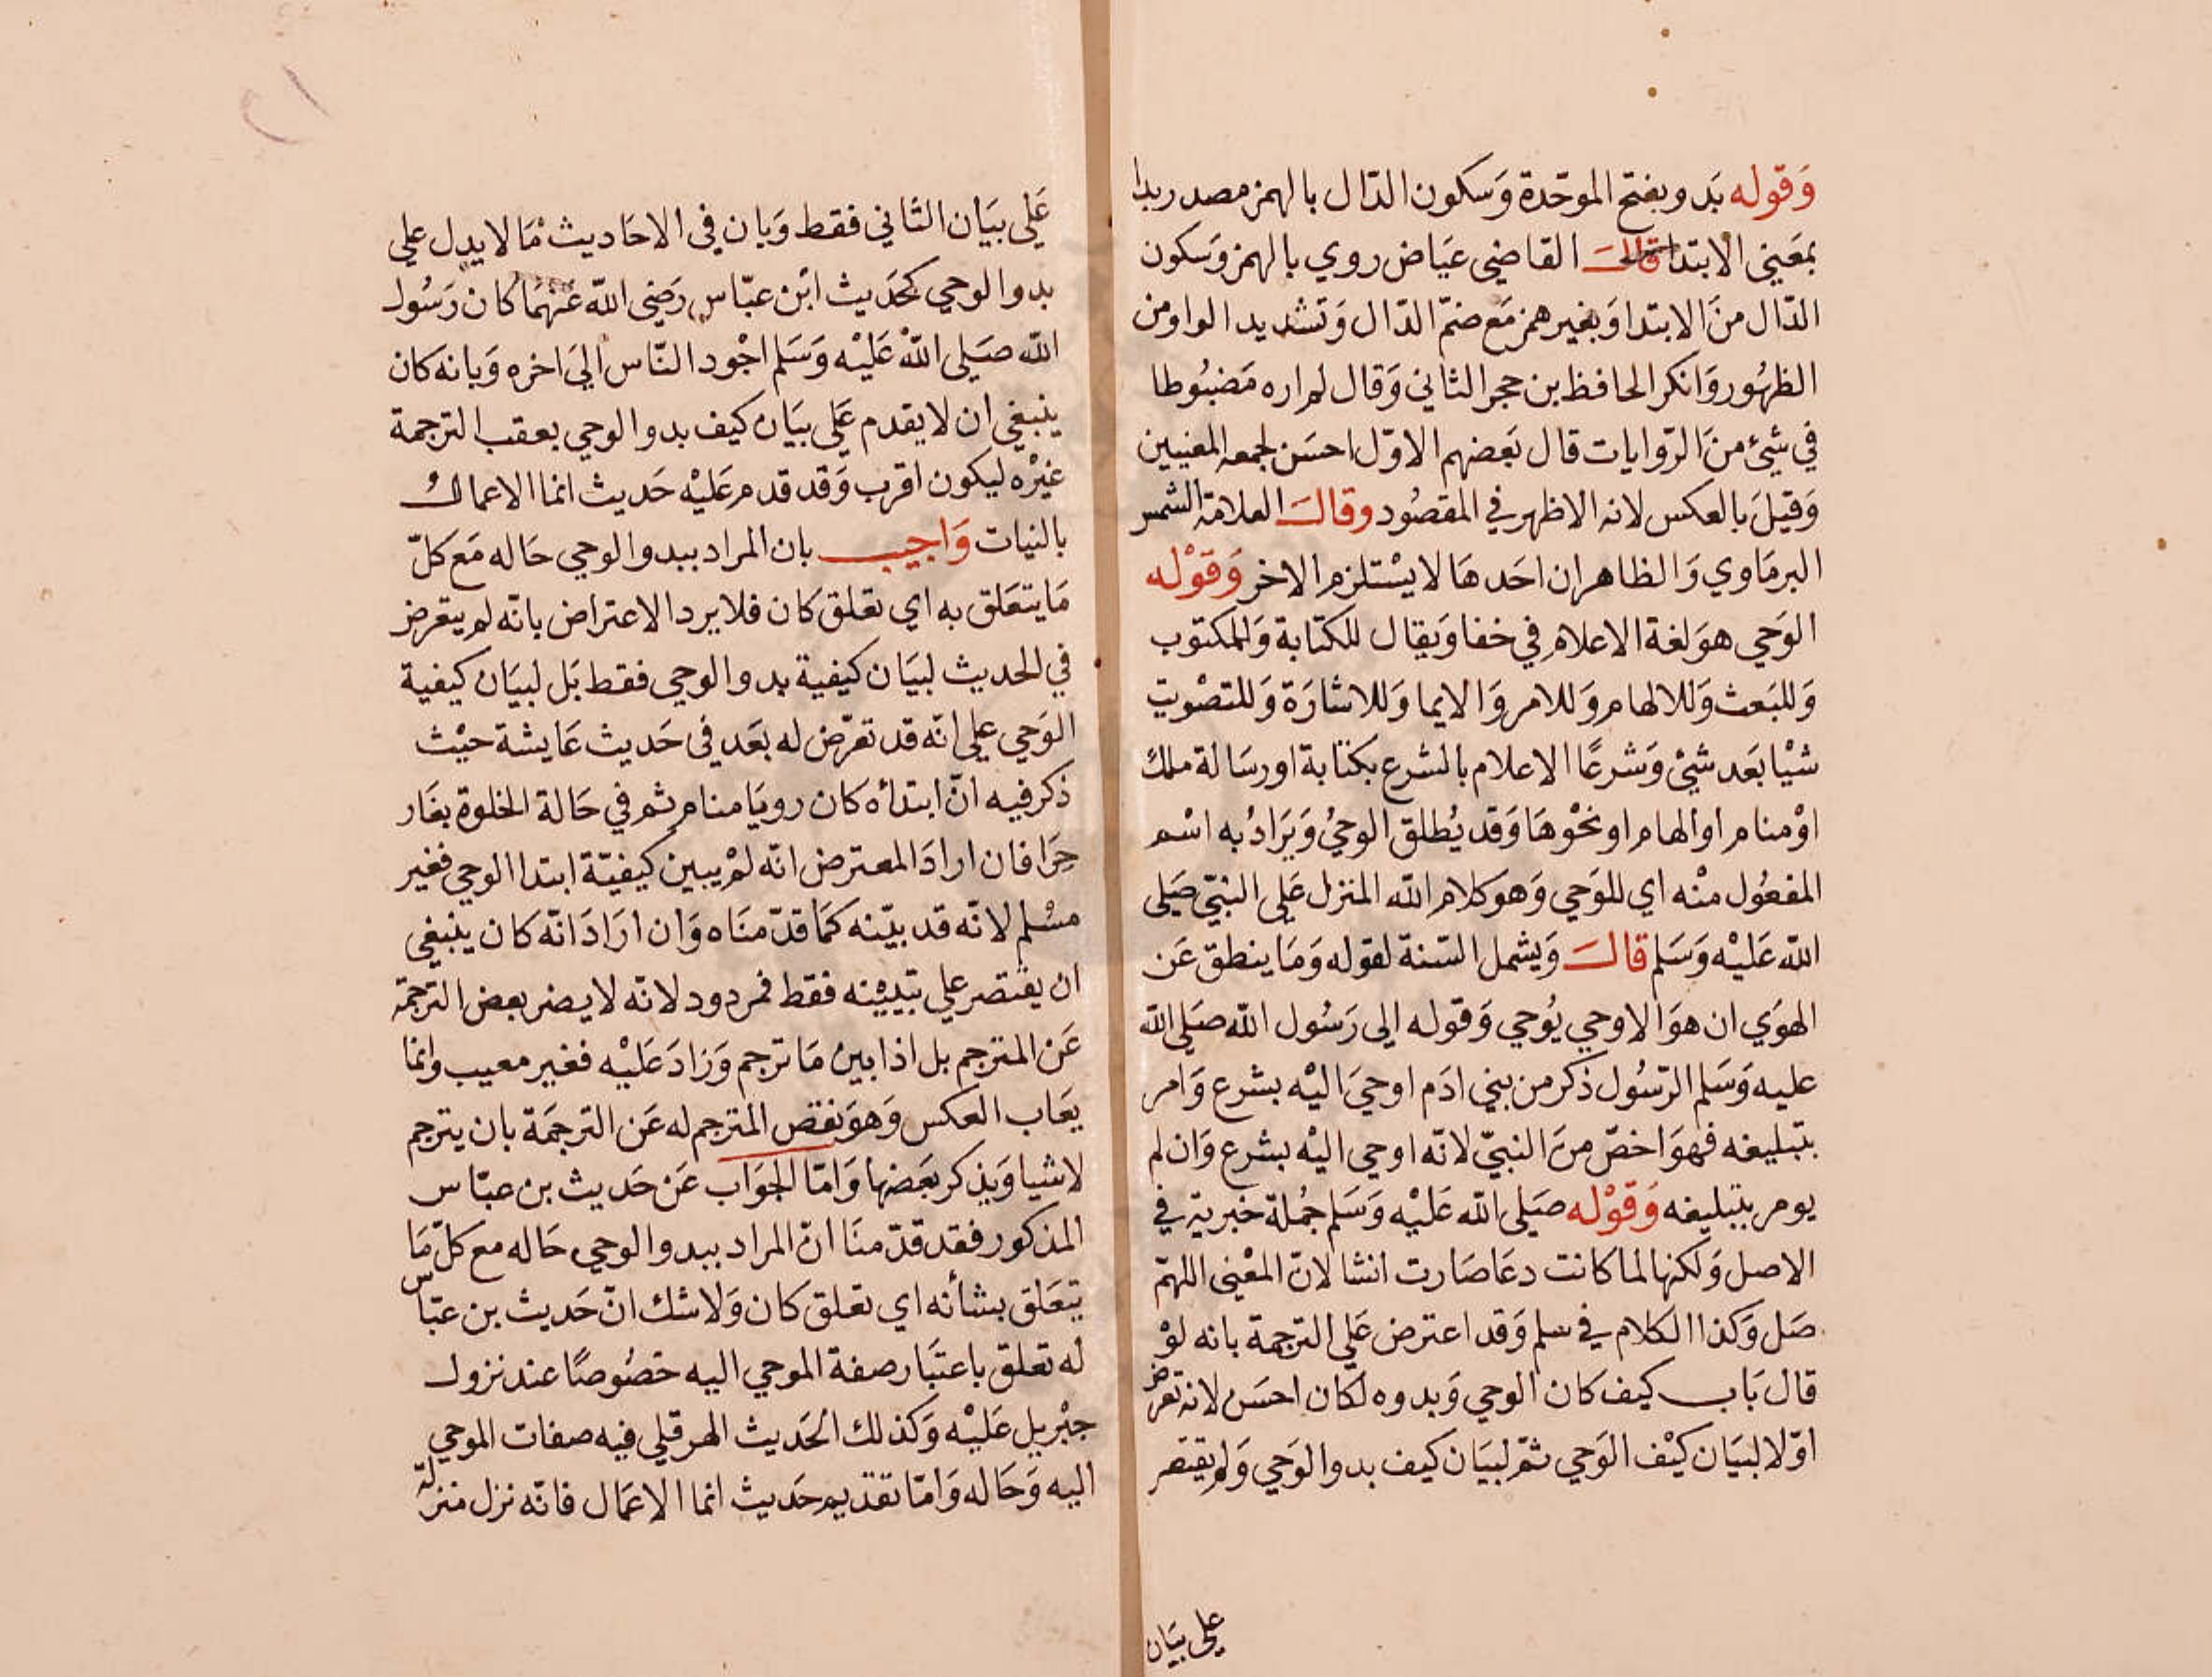 وَقوله بَدو بفتح الموحّدة وَسكون الدّال بالهمز مصدر بدا
بمعَني الابتدا قالَ القاضي عيَاض روي بالهمز وَسكون
الدّال منَ الابتدا وَبغير همز مَع ضمّ الدّال وَتشديد الواو من
الظهُور وَانكر الحافظ بن حجر الثاني وَقال لم اره مَضبُوطا
في شيْ منَ الرّوايات قال بَعضهم الاوّل احسَن لجمعه المعنيين
وَقيلَ بالعكس لانه الاظهر في المقصُود وقالَ العلامة الشمس
البرمَاوي وَالظاهر ان احَدهَا لا يسْتلزم الاخر وَقوْله
الوَحي هوَ لغة الاعلام في خفا وَيقال للكتابة وَالمكتوب
وَللبَعث وَللالهام وَللامر وَالايما وَللاشارَة وَللتصْويت
شيْا بَعد شيْ وَشرعًا الاعلام بالشرع بكتابة او رسَالة ملك
اوْ منام او الهام او نحْوهَا وَقد يُطلق الوحيُ وَيَرادُ به اسْم
المفعُول منْه اي للوَحي وَهو كلام الله المنزل عَلى النبيّ صَلى
الله عَليْه وَسَلم قالَ وَيشمل السّنة لقوله وَمَا ينطق عَن
الهوَي ان هوَ الا وحي يُوحي وَقوله الى رَسُول الله صَلى الله
عليه وَسَلم الرّسُول ذكر من بني ادَم اوحيَ اليْه بشرع وَامر
بتبليغه فهوَ اخصّ منَ النبيّ لانّه اوحي اليْه بشرع وَان لم
يومر بتبليغه وَقوْله صَلى الله عَليْه وَسَلم جُملة خبرية في
الاصل وَلكنها لما كانت دعَا صَارت انشا لانّ المعْنى اللهمّ
صَل وَكذا الكلام في سلم وَقد اعترض عَلى الترجمة بانه لوْ
قال بَاب كيف كان الوحي وَبدوه لكان احسَن لانه تعرض
اوّلا لبيَان كيْف الوَحي ثمّ لبيَان كيف بدو الوَحي وَلم يقتصر
على بيَان
عَلي بيَان الثاني فقط وَبان في الاحَاديث مَا لا يدل علي
بدو الوحي كحَديث ابْن عبّاس رَضي الله عَنهمَا كان رَسُول
الله صَلى اللهُ عَليْه وَسَلم اجْود النّاس اليَ اخره وَبانه كان
ينبغي ان لا يقدم عَلى بيَان كيف بدو الوحي بعقب الترجمة
غيْره ليكون اقرب وَقد قدم عَليْه حَديث انما الاعمالُ
بالنيات وَاجيب بان المراد ببدو الوحي حَاله مَع كلّ
مَا يتعَلق به اي تعلق كان فلا يرد الاعتراض بانّه لم يتعرض
في الحديث لبيَان كيفية بدو الوحي فقط بَل لبيَان كيفية
الوَحي على انّه قد تعَرّض له بَعد في حَديث عَايشة حيْث
ذكر فيه انّ ابتدأه كان رويَا منام ثم في حَالة الخلوة بغَار
حرَا فان ارادَ المعترض انّه لمْ يبين كيفيّة ابتدا الوحي فغير
مسْلم لانّه قد بيّنه كمَا قدّمنَاه وَان ارَادَ انّه كان ينبغي
ان يقتصر علي تبْيينه فقط فمردود لانّه لا يضر بعض الترجمة
عَن المترجم بل اذا بين مَا ترجم وَزادَ عَليْه فغير معيب وانما
يعَاب العكس وَهوَ نقص المترجم له عَن الترجمَة بان يترجم
لاشيا وَيذكر بَعضها وَامّا الجوَاب عَن حَديث بن عبّاس
المذكور فقد قدّمنَا انّ المراد ببدو الوحي حَاله مع كلّ مَا
يتعَلق بشأنه اي تعلق كان وَلا شك انّ حَديث بن عبّاس
له تعلق باعتبَار صفة الموحي اليه خصُوصًا عند نزول
جبْريل عَليْه وَكذلك الحَديث الهرقلي فيه صفات الموحي
اليه وَحَاله وَامّا تقديم حَديث انما الاعمَال فانّه نزل منزلة